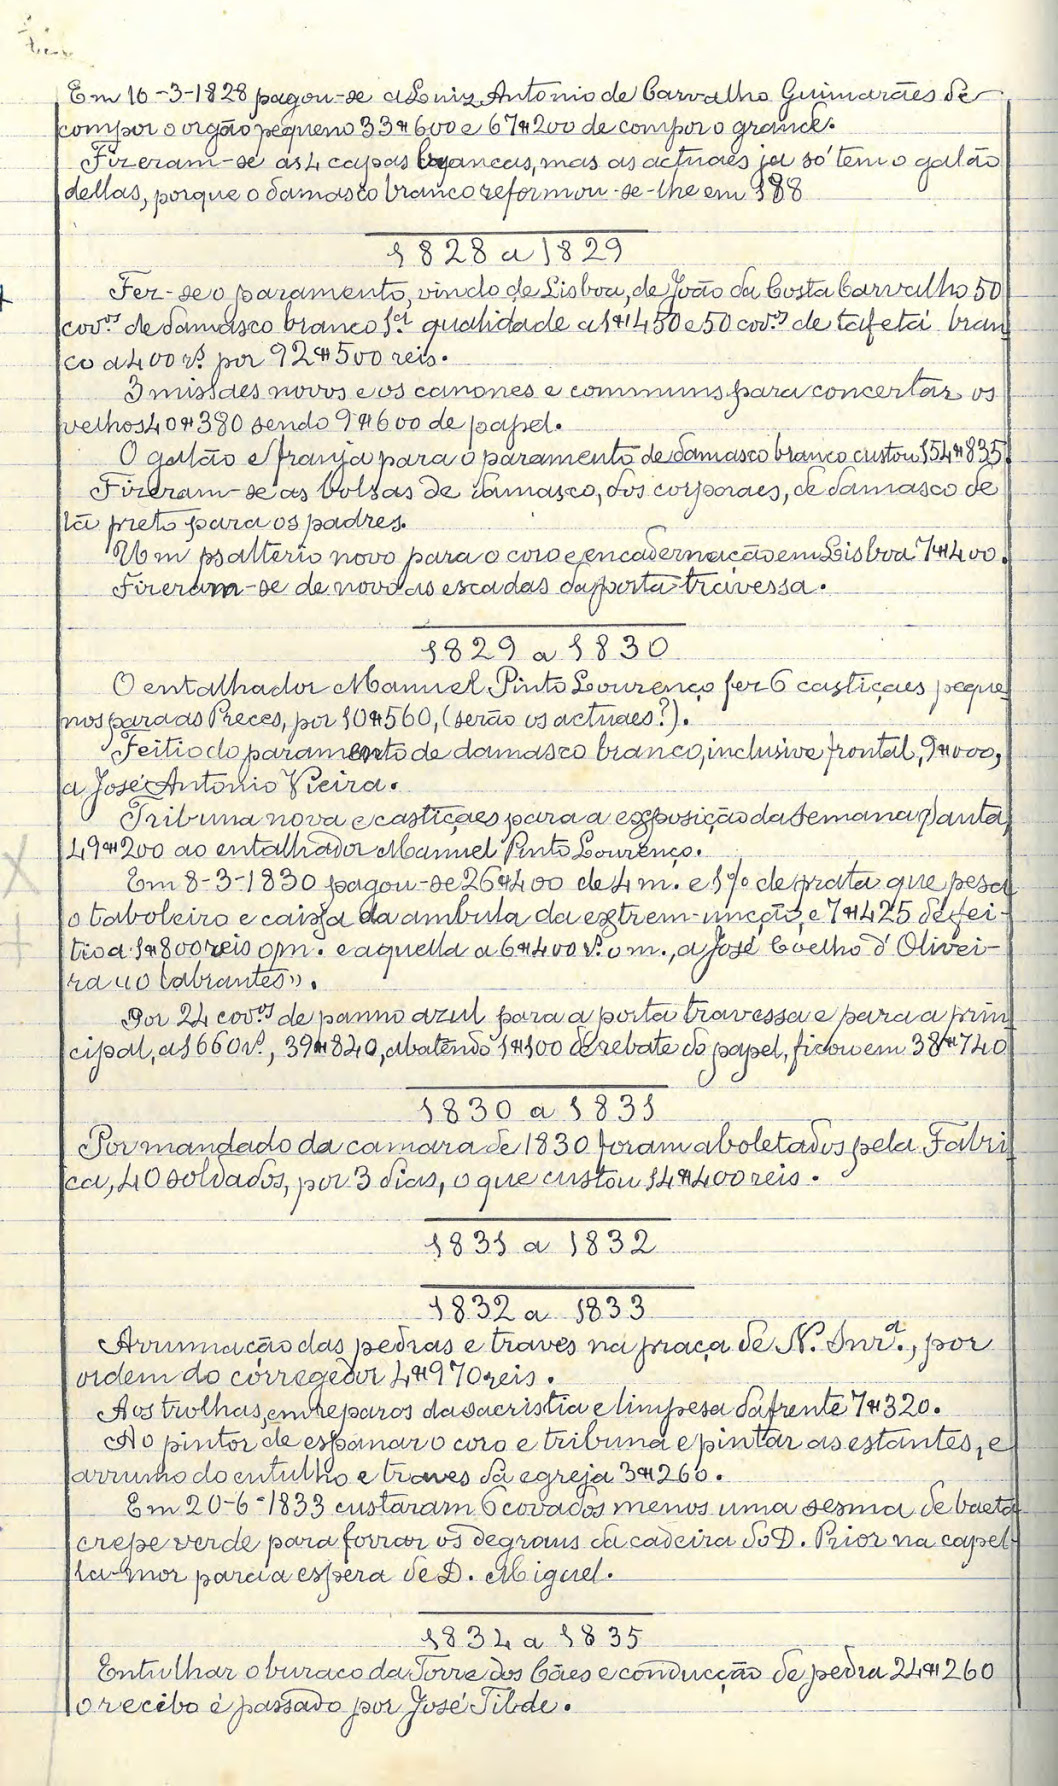 Em 16-3-1828 pagou-se a Luiz Antonio de Carvalho Guimarães de
compor o orgão pequeno 33$600 e 67$200 de compor o grande.
Fizeram-se as 4 capas brancas, mas as actuaes ja só tem o galão
dellas, porque o damasco branco reformou-se-lhe em 188
1828 a 1829
Fez-se o paramento, vindo de Lisboa, de João da Costa Carvalho 50
cov.os de damasco branco 1.ª qualidade a 1$450 e 50 cov.os de tafetá bran
co a 400 rs. por 92$500 reis.
3 missaes novos e os canones e communs para concertar os
velhos 40$380 sendo 9$600 de papel.
O galão e franja para o paramento de damasco branco custou 154$835.
Fizeram-se as bolsas de damasco, dos corporaes, de damasco de
lã preto para os padres.
Um psalterio novo para o coro e encadernação em Lisboa 7$400.
Fizeram-se de novo as escadas da porta travessa.
1829 a 1830
O entalhador Manuel Pinto Lourenço fez 6 castiçaes peque
nos para as Preces, por 10$560, (serão os actuaes?).
Feitio do paramento de damasco branco, inclusive frontal, 9$000,
a José Antonio Vieira.
Tribuna nova e castiçaes para a exposição da Semana Santa,
49$200 ao entalhador Manuel Pinto Lourenço.
Em 8-3-1830 pagou-se 26$400 de 4 m. e 1/0 de prata que pesa
o taboleiro e caixa da ambula da extrem-uncção, e 7$425 de fei-
tio a 1$800 reis o m. e aquella a 6$400 rs. o m., a José Coelho d'Olivei-
ra «o Abrantes».
Por 24 cov.os de panno azul para a porta travessa e para a prin
cipal, a 1660 rs., 39$840, abatendo 1$100 de rebate do papel, ficou em 38$740
1830 a 1831
Por mandado da camara de 1830 foram aboletados pela Fabri
ca, 40 soldados, por 3 dias, o que custou 14$400 reis.
1831 a 1832
1832 a 1833
Arrumação das pedras e traves na praça de N. Snr.ª, por
ordem do corregedor 4$970 reis.
Aos trolhas, em reparos da sacristia e limpesa da frente 7$320.
Ao pintor de espanar o coro e tribuna e pintar as estantes, e
arrumo do entulho e traves da egreja 3$260.
Em 20-6-1833 custaram 6 covados menos uma sesma de baeta
crepe verde para forrar os degraus da cadeira do D. Prior na capel-
la-mor para a espera de D. Miguel.
1834 a 1835
Entulhar o buraco da Torre dos Cães e conducção de pedra 24$260
o recibo é passado por José Tilde.